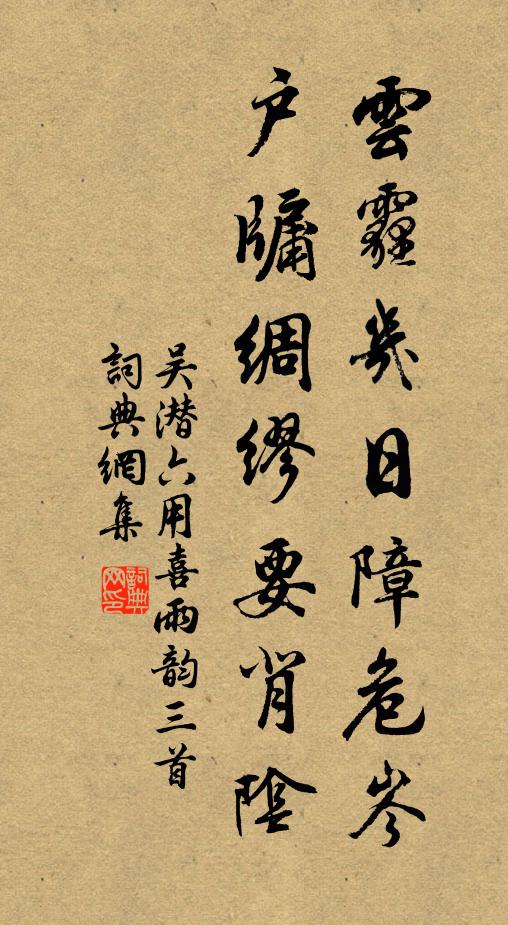 雲霾幾日障危岑
户牖綢繆要背陰
吴潜六用喜雨韵三首
詞典網集
詞典网印